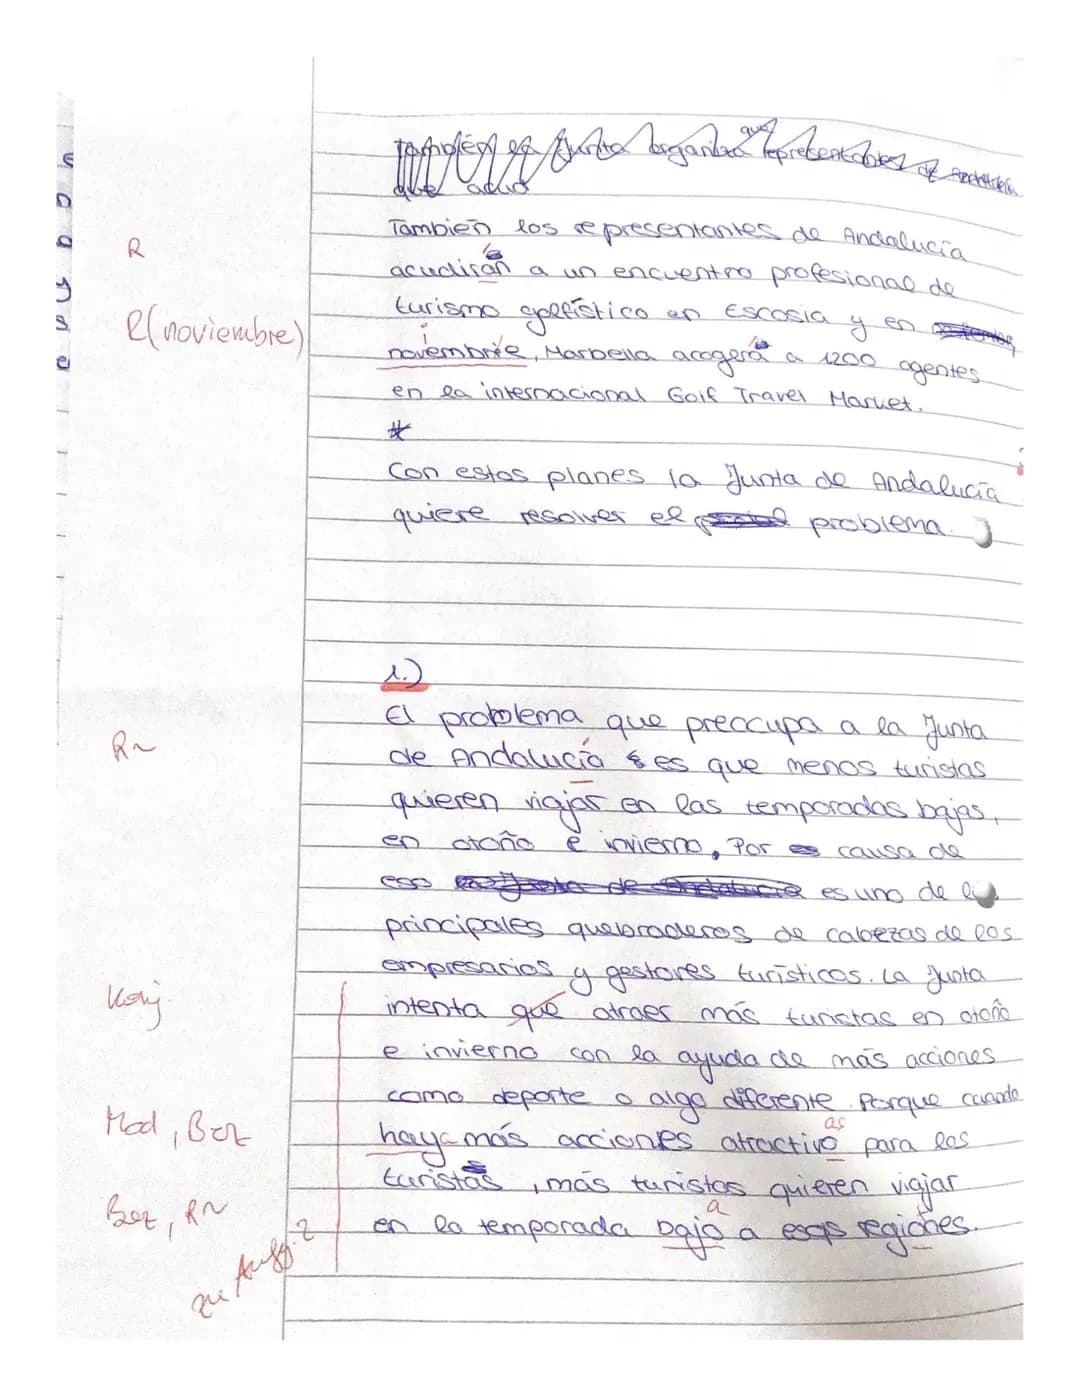 también la Junta organiza que representantes de
que acud
R
También los representantes de Andalucía
acudirán a un encuentro profesional de
R(noviembre)
turismo golfístico en Escosia y en
novembrie, Marbella acogerá a 1200 agentes
i
en la internacional Golf Travel Market.
*
Con estos planes la Junta de Andalucía
quiere resolver el problema.
1.)
El problema que preccupa a la Junta
R~
de Andalucía es que menos turistas
quieren viajar en las temporadas bajas,
en otoño e invierno, Por causa de
eso la Junta de Andalucía es uno de
principales quebraderos de cabezas de los
empresarios y gestores turísticos. La Junta
Konj.
intenta que atraer más turistas en otoño
e invierno con la ayuda de más acciones
como deporte o algo diferente. Porque cuando
Mod, Bez
haya más acciones atractivo para los
as
turistas, más turistas quieren viajar
Bez, R~
en la temporada bajo a esas regiones.
a
zu Aufg. 2